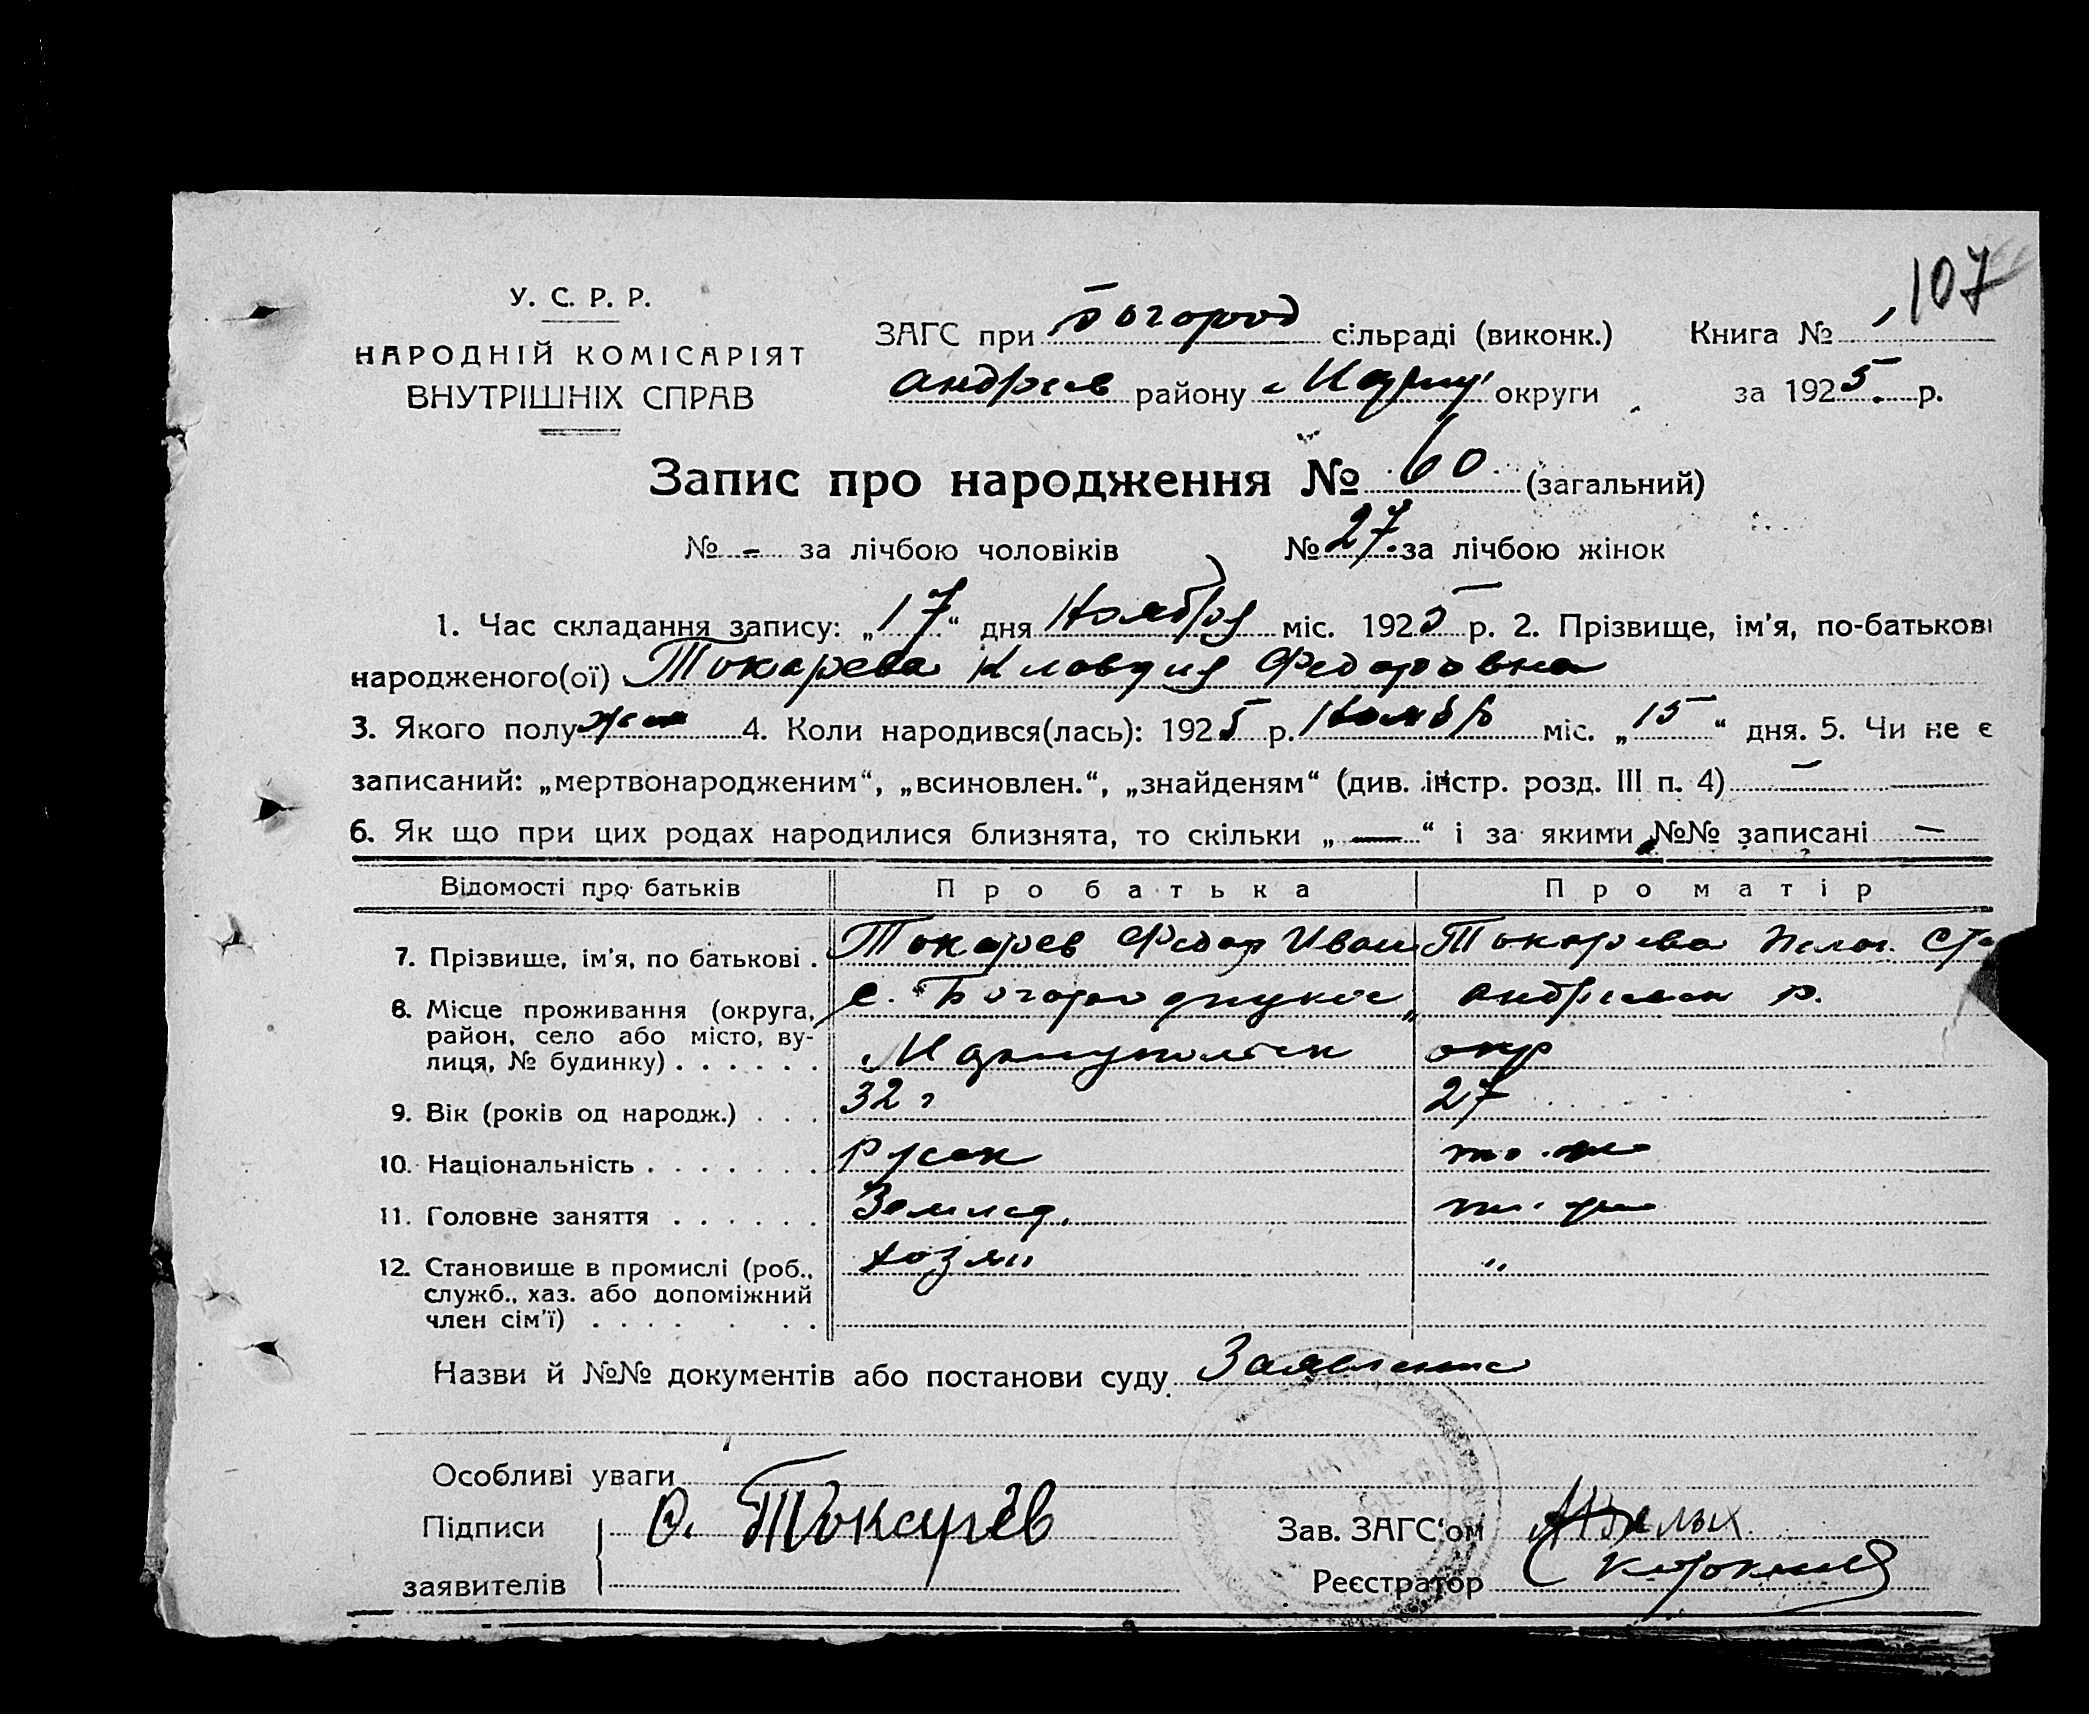 107
У. С. Р. Р.
НАРОДНІЙ КОМІСАРІЯТ
ВНУТРІШНІХ СПРАВ
ЗАГС при Богород сільраді (виконк.) Книга № 1
Андреев району округи за 1925 р.
Запис про народження № 60 (загальний)
№ - за лічбою чоловіків № 27 за лічбою жінок
1. Час складання запису: „17“ дня Ноября міс. 1925 р. 2. Прізвище, ім'я, по-батькові
народженого(ої) Токарева Клавдия Федоровна
3. Якого полу жен 4. Коли народився(лась): 1925 р. Ноябр міс. „15“ дня. 5. Чи не є
записаний: „мертвонародженим“, „всиновлен.“, „знайденям“ (див. інстр. розд. III п. 4) —
6. Як що при цих родах народилися близнята, то скільки „—“ і за якими №№ записані —
Відомості про батьків Про батька Про матір
7. Прізвище, ім'я, по батькові . Токарев Федор Иван Токарева
8. Місце проживання (округа, район, село або місто, вулиця, № будинку) . . . . . . с. Андреевск р.
Мариупольск окр
9. Вік (років од народж.) . . . 32 г 27
10. Національність . . . . . . . Русск то-же
11. Головне заняття . . . . . . Землед. то-же
12. Становище в промислі (роб., служб., хаз. або допоміжний член сім'ї) . . . . . . . хозяин „
Назви й №№ документів або постанови суду Заявление
Особливі уваги
Підписи Токарев Зав. ЗАГС'ом
заявителів Реєстратор